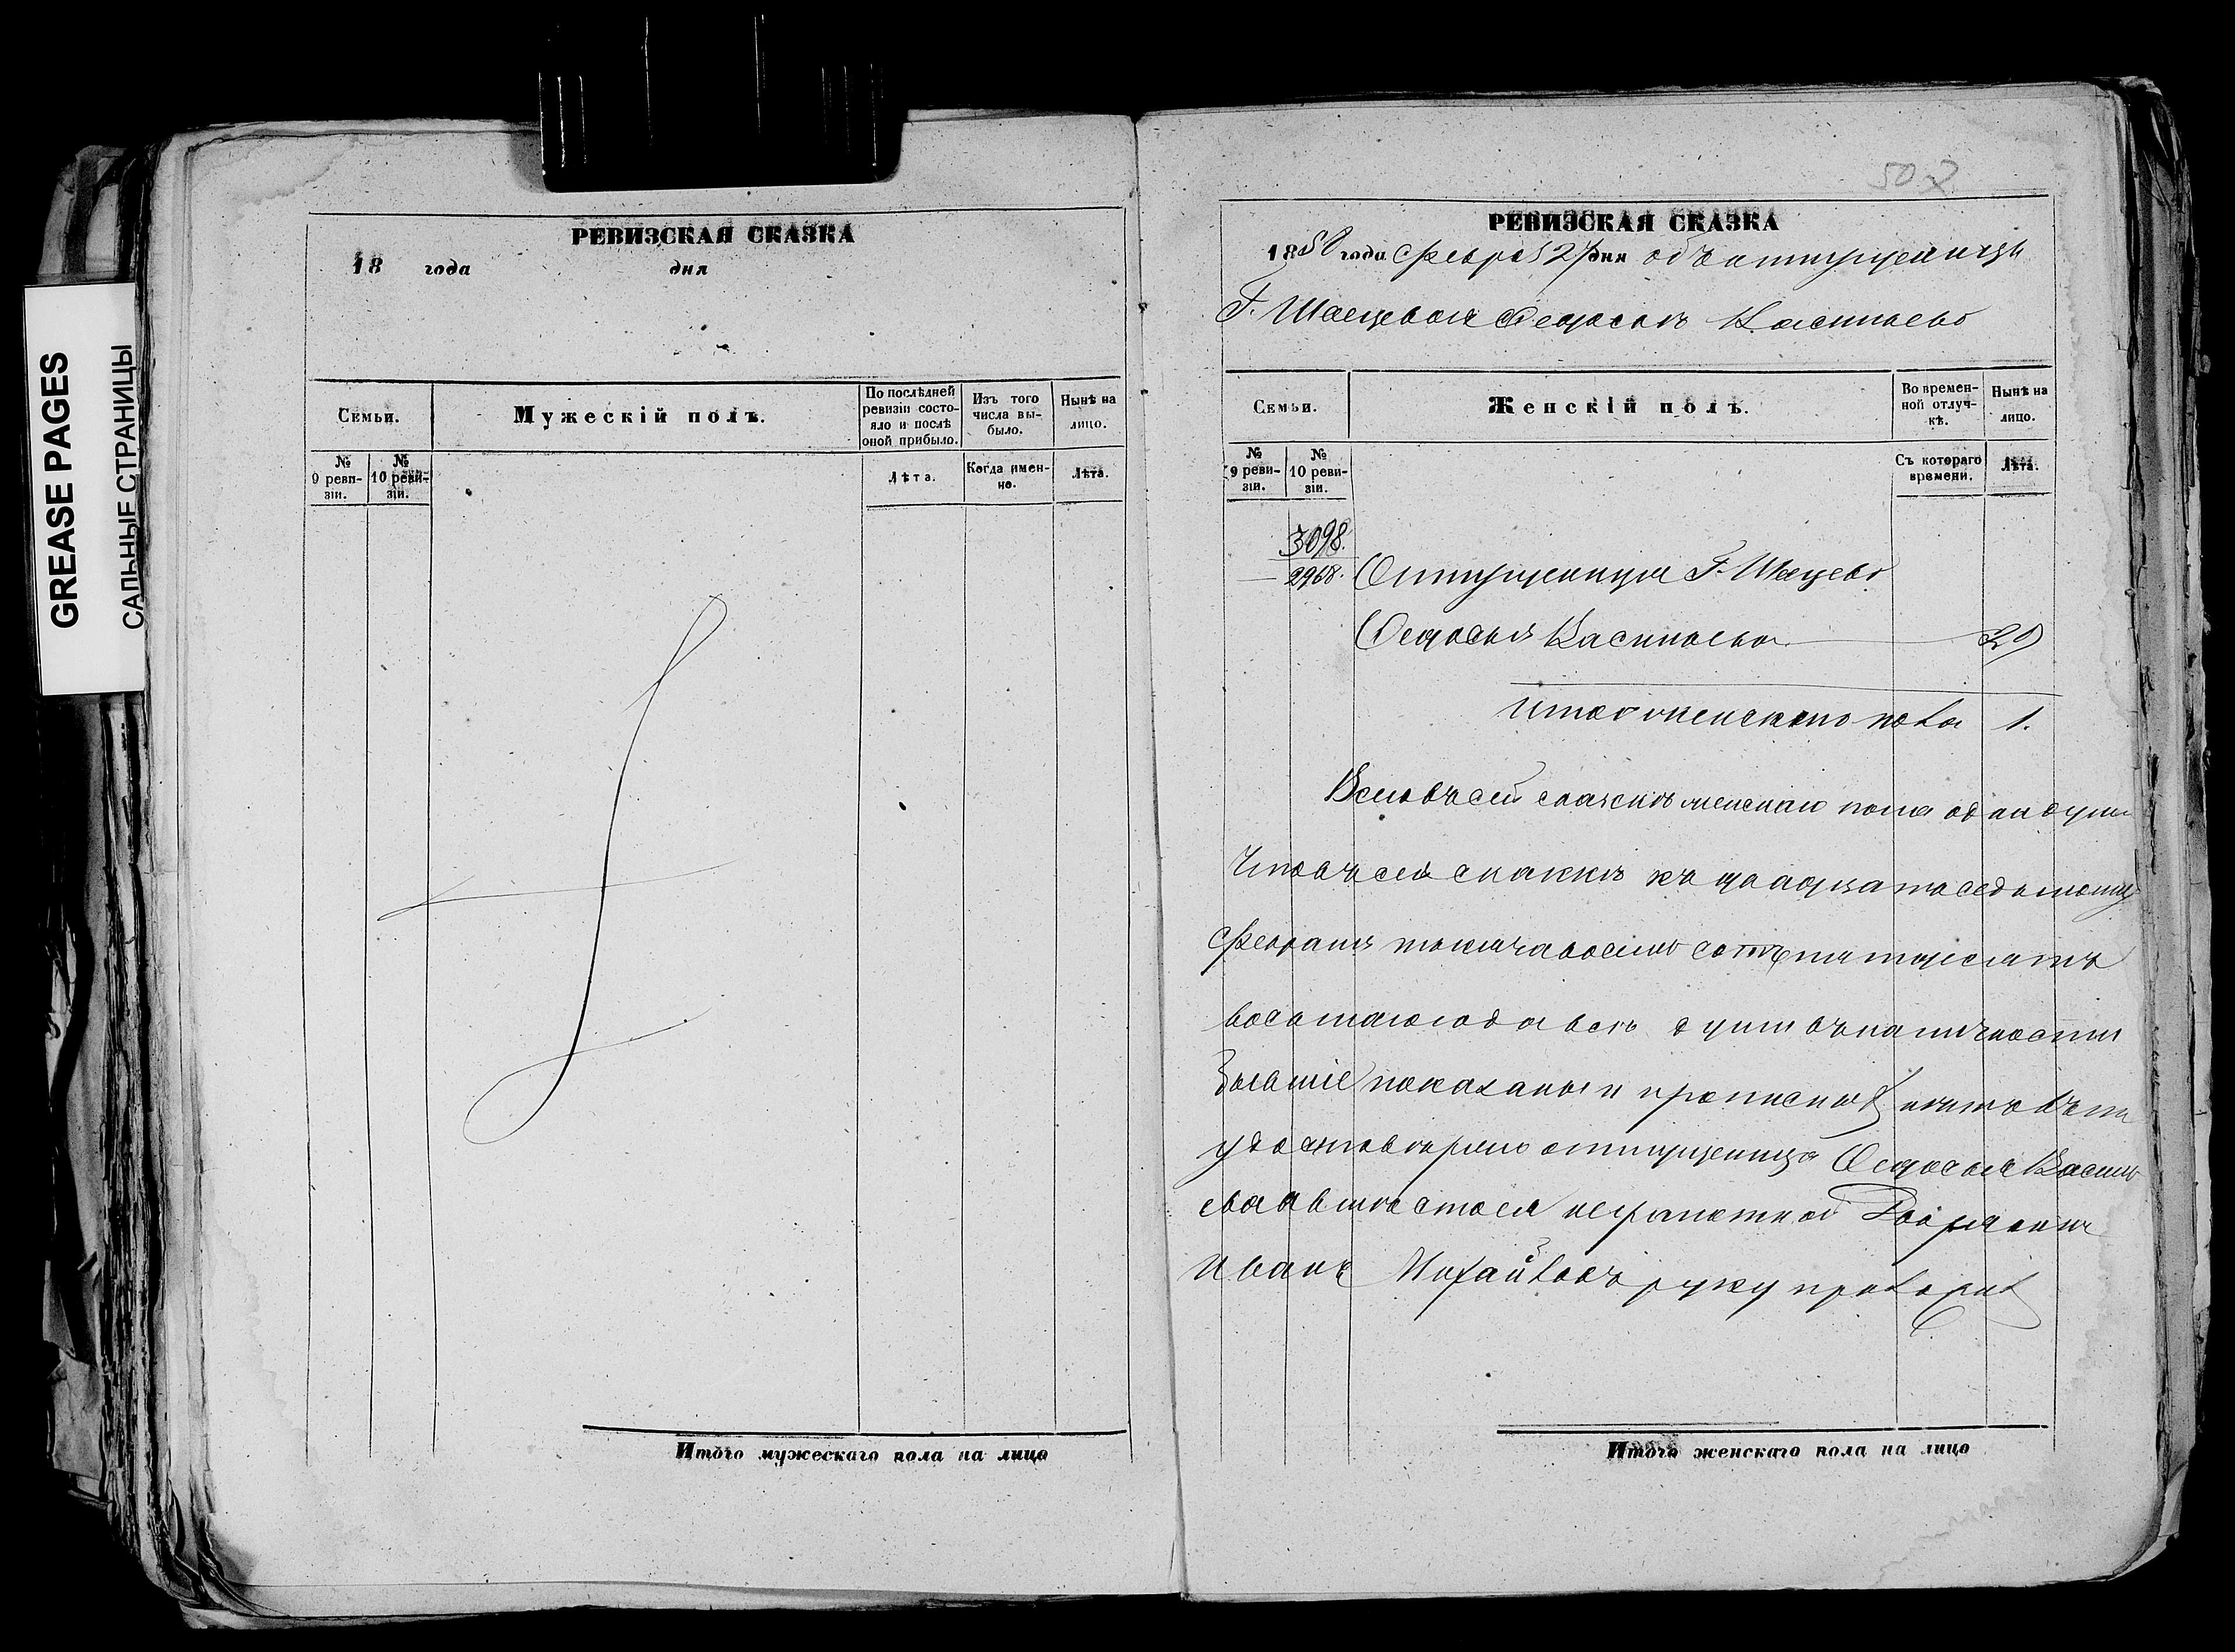 GREASE PAGES
САЛЬНЫЕ СТРАНИЦЫ
РЕВИЗСКАЯ СКАЗКА
18 года дня
Семьи.
Мужескій полъ.
По послѣдней ревизіи состояло и послѣ оной прибыло.
Изъ того числа выбыло.
Нынѣ на лицо.
№ 9 ревизіи.
№ 10 ревизіи.
Лѣта.
Когда именно.
Лѣта.
Итого мужескаго пола на лицо
507
РЕВИЗСКАЯ СКАЗКА
1858 года Февра 27 дня объ отпущеницѣ
Г. Федосьѣ Васильево
Семьи.
Женскій полъ.
Во временной отлучкѣ.
Нынѣ на лицо.
№ 9 ревизіи.
№ 10 ревизіи.
Съ котораго времени.
Лѣта.
3098.
2968.
Отпущеница Г.
Федосья Васильева 29
итого женскаго пола 1.
Всего въ сей сказкѣ женскаго пола одна душа
Что въ сей сказкѣ къ двадцать седьмому
февраля тысяча восемь сотъ пятдесятъ
восьмаго года всѣ души въ наличности
бывшіе показаны и прописныхъ нѣтъ въ том
удостовѣряю отпущеница Федосья Василь
ева а вместо ея неграмотной Дворянин
Иванъ Михайловъ руку приложилъ
Итого женскаго пола на лицо